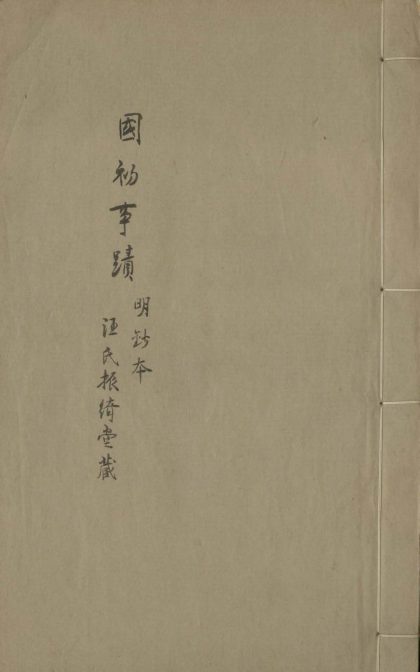 國初事蹟
明鈔本
汪氏振綺堂藏